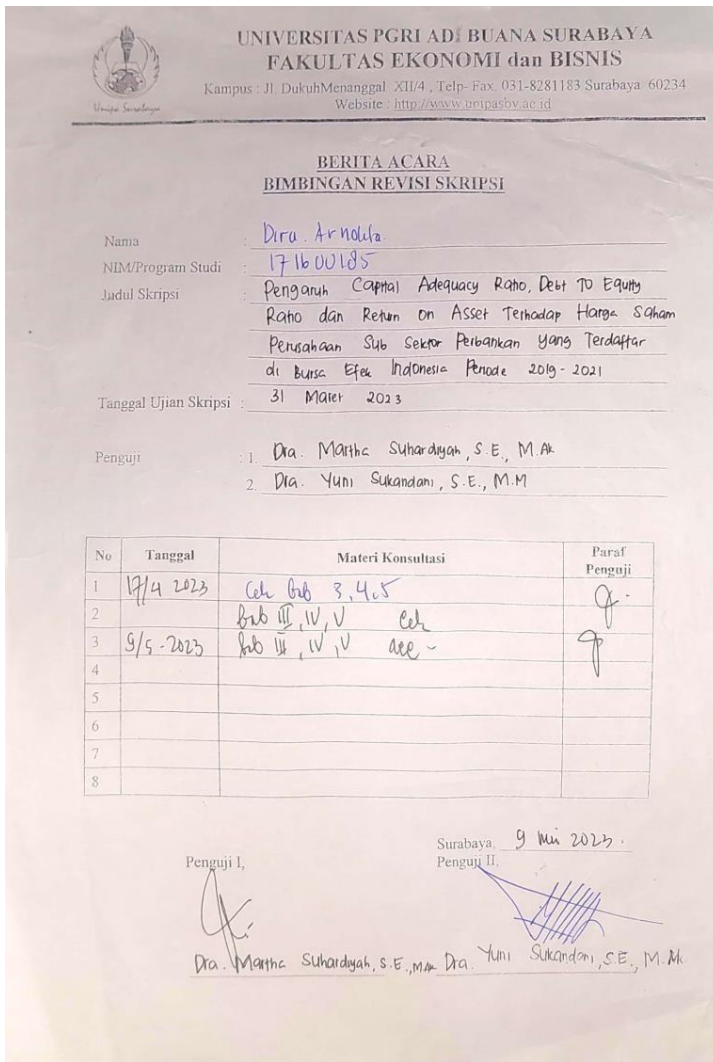 UNIVERSITAS PGRI ADI BUANA SURABAYA
FAKULTAS EKONOMI dan BISNIS
Kampus : Jl. DukuhMenanggal XII/4 , Telp- Fax. 031-8281183 Surabaya 60234
Website : http://www.unipasby.ac.id
Unipa Surabaya
BERITA ACARA
BIMBINGAN REVISI SKRIPSI
Nama : Dira. Arnolita.
NIM/Program Studi : 171600185
Judul Skripsi : Pengaruh Capital Adequacy Ratio, Debt To Equity
Ratio dan Return on Asset Terhadap Harga Saham
Perusahaan Sub Sektor Perbankan yang Terdaftar
di Bursa Efek Indonesia Periode 2019 - 2021
Tanggal Ujian Skripsi : 31 Maret 2023
Penguji : 1. Dra. Martha Suhardiyah, S.E., M.Ak
2. Dra. Yuni Sukandani, S.E., M.M
No Tanggal Materi Konsultasi Paraf Penguji
1 17/4 2023 Cek bab 3,4,5
2 bab III, IV, V Cek
3 9/5 - 2023 bab III, IV, V acc -
4
5
6
7
8
Surabaya, 9 Mei 2023.
Penguji I, Penguji II,
Dra. Martha Suhardiyah, S.E., M.Ak Dra. Yuni Sukandani, S.E., M.Ak